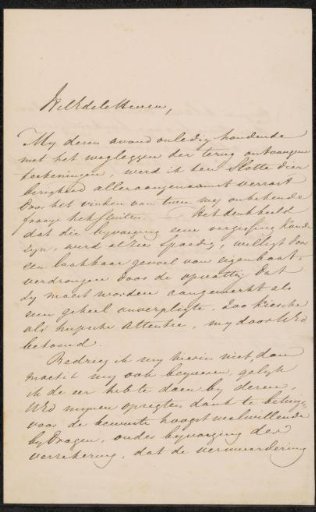 WelEdele Heeren,
My dezen avond onledig houdende
met het wegleggen der terug ontvangen
teekeningen, werd ik ten Slotte dier
bezigheid alleraangenaamst verrast
door het vinden van twee my onbekende
fraaye het denkbeeld
dat die byvoeging eene vergissing konde
zyn, werd al zeer spoedig, wellicht door
een laakbaar gevoel van eigenbaat,
verdrongen door de opvatting dat
zy moest worden aangemerkt als
eene geheel onverpligte, zoo kiesche
als heusche Attentie, my door UEd
betoond.
Bedrieg ik my hierin niet, dan
mag ik my ook beyveren, gelyk
ik de eer heb te doen by dezen,
UEd mynen opregten dank te betuigen
voor de bewuste hoogst welwillende
bydragen, onder byvoeging der
verzekering, dat de vermeerdering